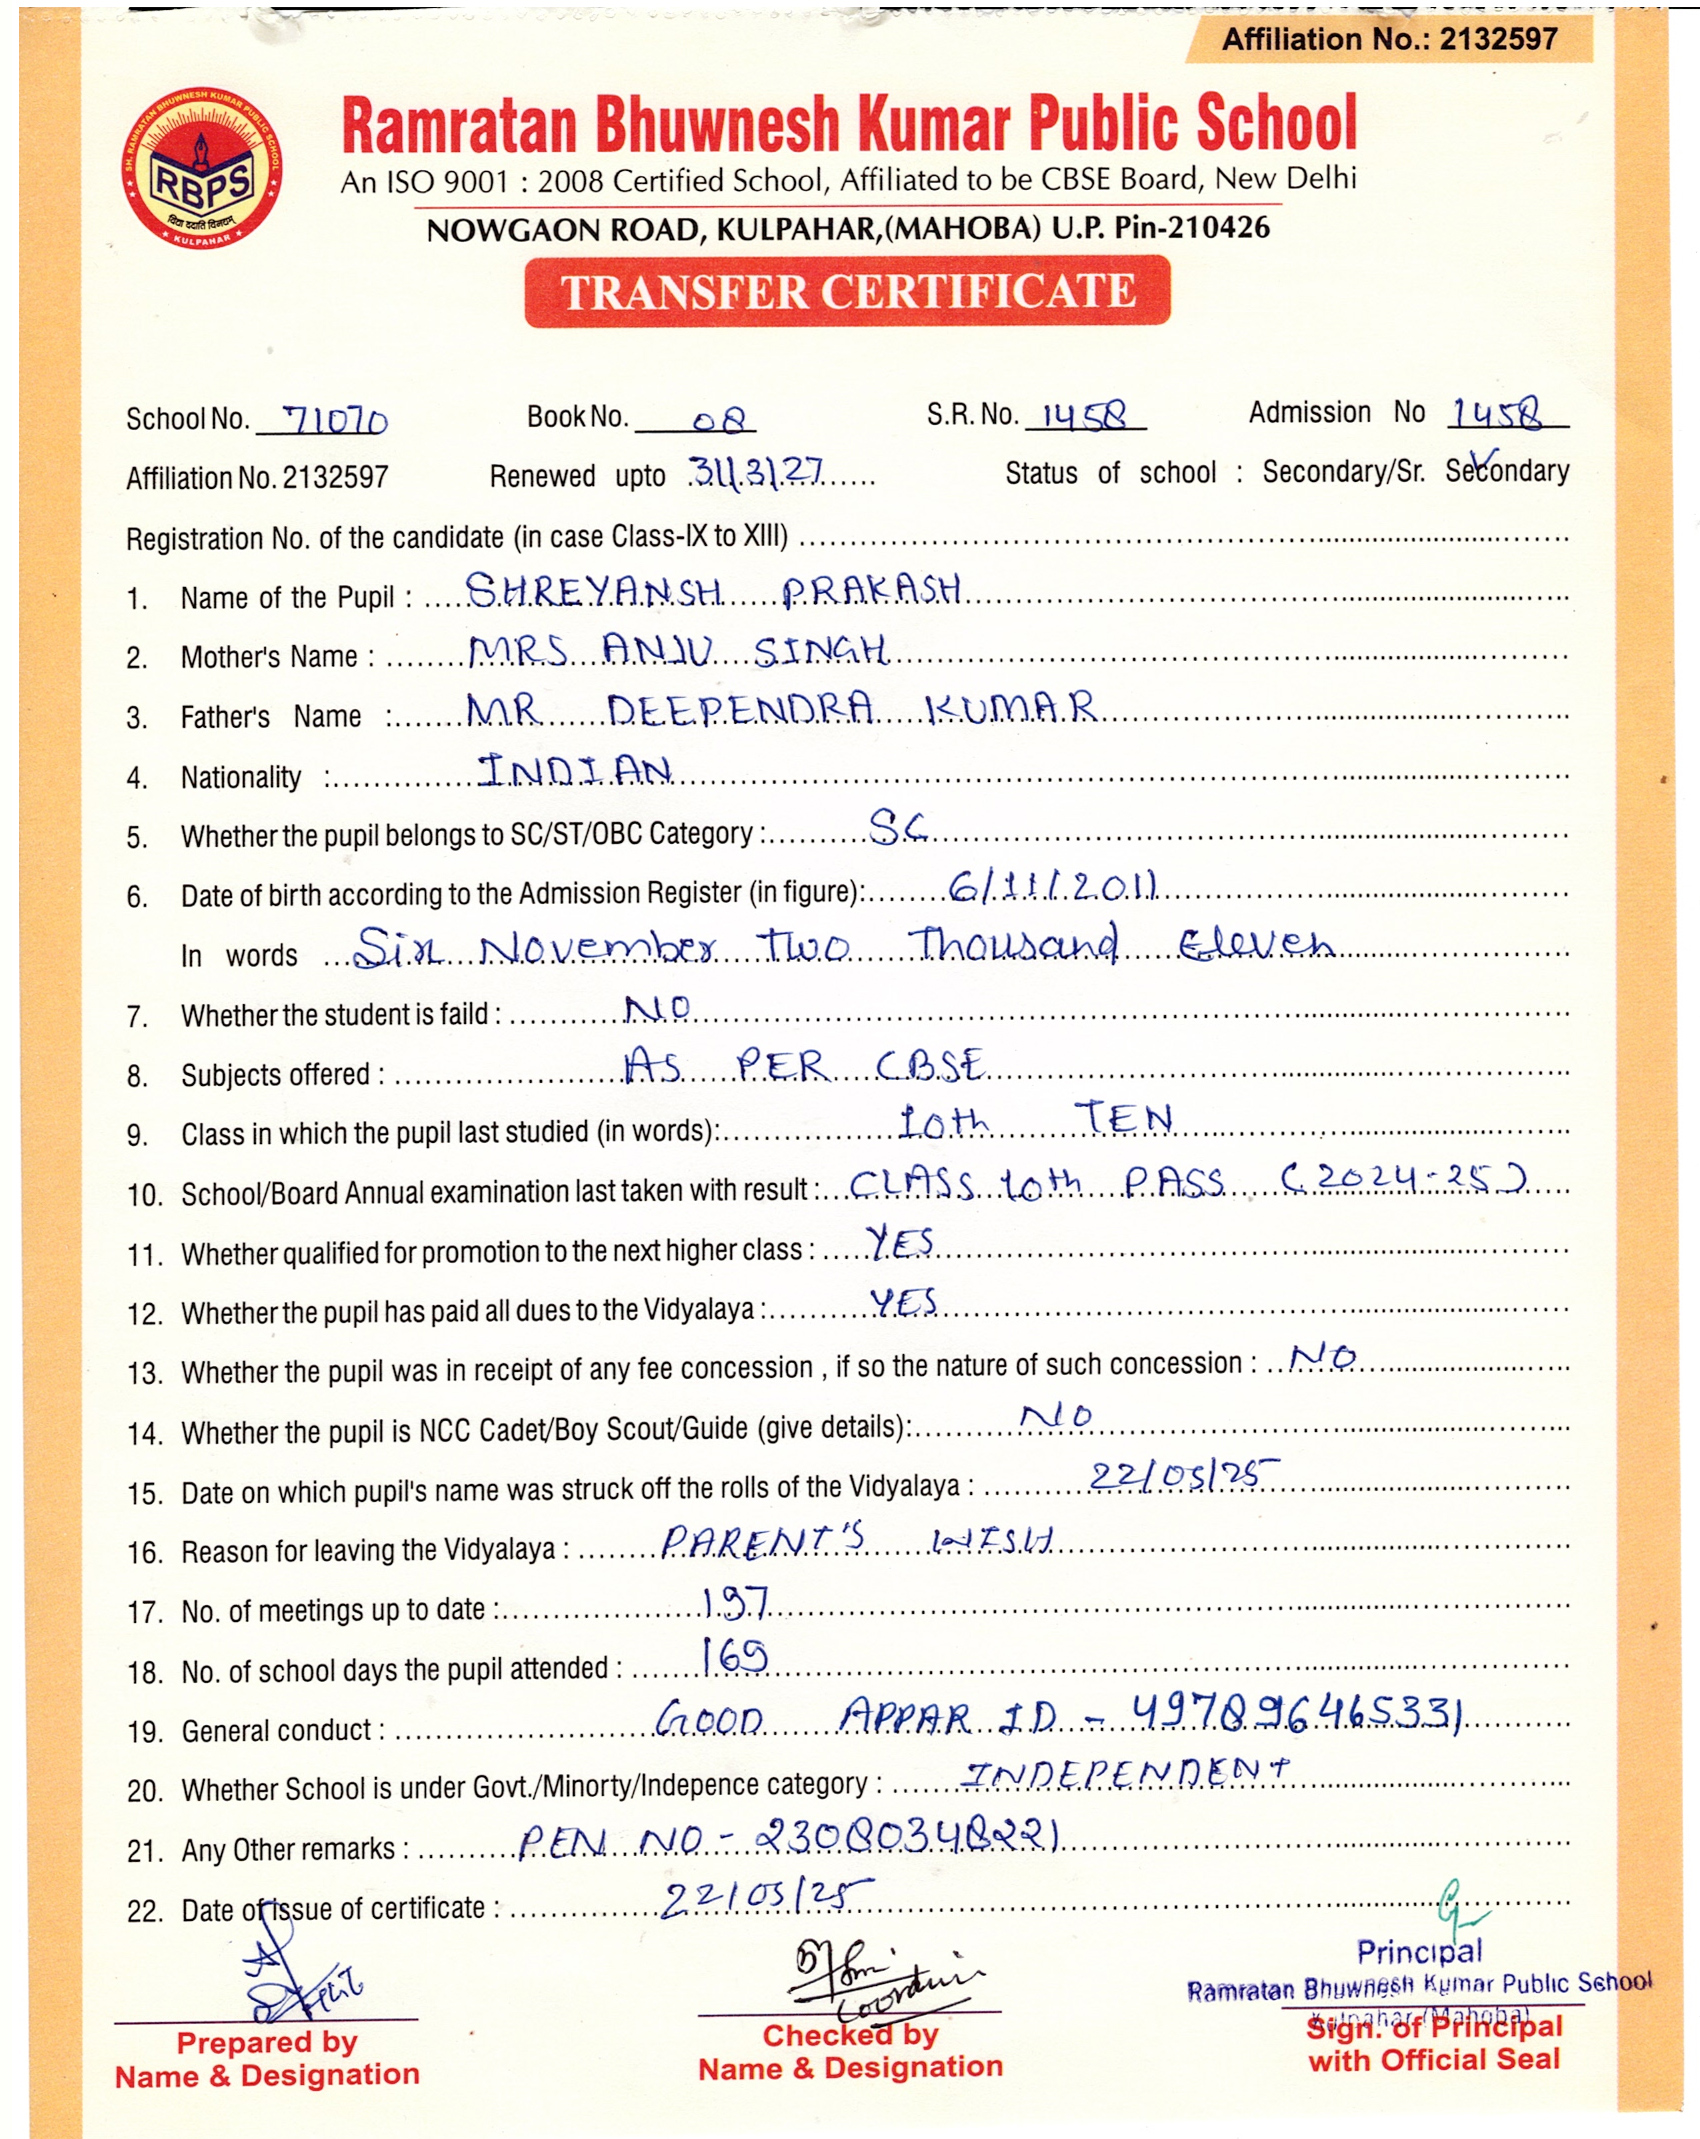 Affiliation No.: 2132597
SH. RAMRATAN BHUWNESH KUMAR PUBLIC SCHOOL
RBPS
विद्या ददाति विनयम्
KULPAHAR
Ramratan Bhuwnesh Kumar Public School
An ISO 9001 : 2008 Certified School, Affiliated to be CBSE Board, New Delhi
NOWGAON ROAD, KULPAHAR,(MAHOBA) U.P. Pin-210426
TRANSFER CERTIFICATE
School No. 71070 Book No. 08 S.R. No. 1458 Admission No 1458
Affiliation No. 2132597 Renewed upto 31/3/27 Status of school : Secondary/Sr. Secondary
Registration No. of the candidate (in case Class-IX to XIII)
1. Name of the Pupil : SHREYANSH PRAKASH
2. Mother's Name : MRS ANJU SINGH
3. Father's Name : MR DEEPENDRA KUMAR
4. Nationality : INDIAN
5. Whether the pupil belongs to SC/ST/OBC Category : SC
6. Date of birth according to the Admission Register (in figure): 6/11/2011
In words Six November Two Thousand Eleven
7. Whether the student is faild : NO
8. Subjects offered : AS PER CBSE
9. Class in which the pupil last studied (in words): 10th TEN
10. School/Board Annual examination last taken with result : CLASS 10th PASS (2024-25)
11. Whether qualified for promotion to the next higher class : YES
12. Whether the pupil has paid all dues to the Vidyalaya : YES
13. Whether the pupil was in receipt of any fee concession , if so the nature of such concession : NO
14. Whether the pupil is NCC Cadet/Boy Scout/Guide (give details): NO
15. Date on which pupil's name was struck off the rolls of the Vidyalaya : 22/05/25
16. Reason for leaving the Vidyalaya : PARENT'S WISH
17. No. of meetings up to date : 197
18. No. of school days the pupil attended : 169
19. General conduct : GOOD APPAR ID - 497896465331
20. Whether School is under Govt./Minorty/Indepence category : INDEPENDENT
21. Any Other remarks : PEN NO - 23080348221
22. Date of issue of certificate : 22/05/25
Principal
Ramratan Bhuwnesh Kumar Public School
Kulpahar (Mahoba)
Prepared by
Name & Designation
Checked by
Name & Designation
Sign. of Principal
with Official Seal